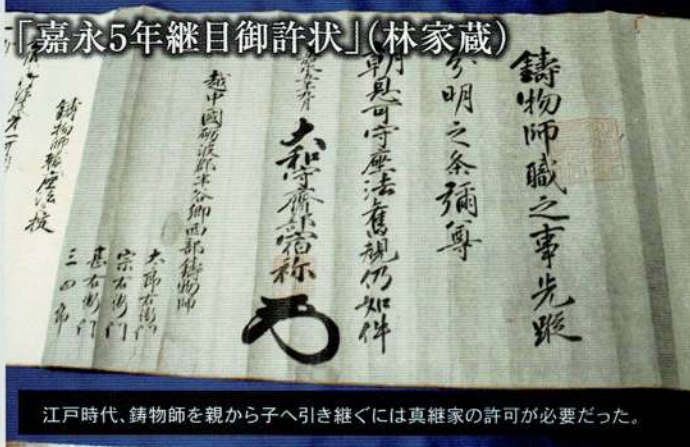 「嘉永5年継目御許状」(林家蔵)
鋳物師職之事先蹤
分明之条彌尊
朝恩可守座法舊規仍如件
大和守齋部宿祢
越中國砺波郡 谷郷西部鋳物師
太郎右衛門
宗右衛門
甚右衛門
三四郎
鋳物師 座法 掟
江戸時代、鋳物師を親から子へ引き継ぐには真継家の許可が必要だった。